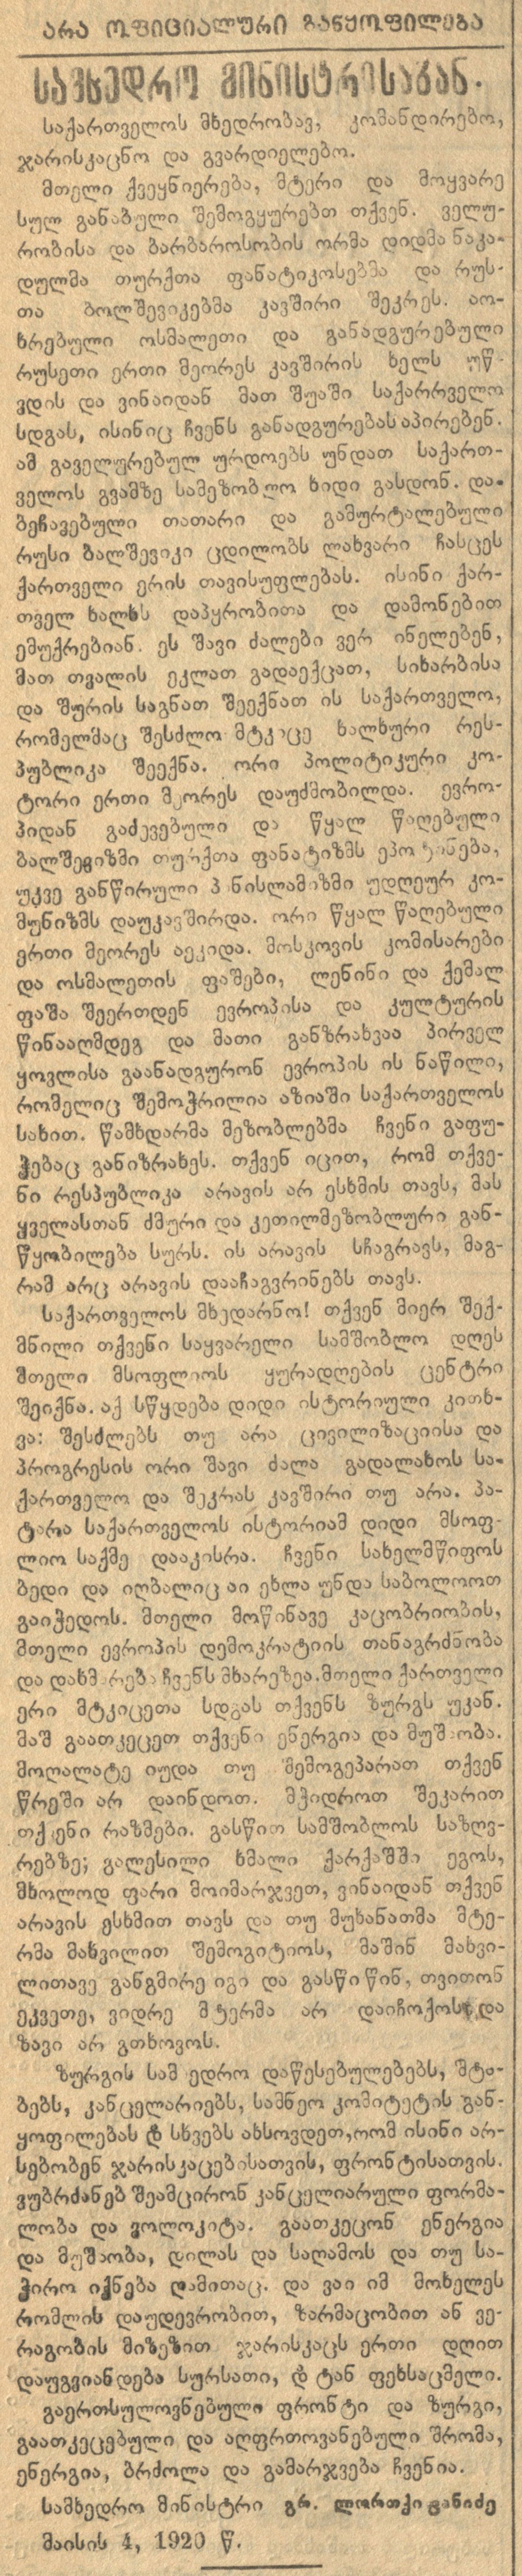 არა ოფიციალური განყოფილება
სამხედრო მინისტრისაგან.
საქართველოს მხედრობავ, კომანდირებო,
ჯარისკაცნო და გვარდიელებო.
მთელი ქვეყნიერება, მტერი და მოყვარე
სულ განაბული შემოგყურებთ თქვენ. ველუ-
რობისა და ბარბაროსობის ორმა დიდმა ნაკა-
დულმა თურქთა ფანატიკოსებმა და რუს-
თა ბოლშევიკებმა კავშირი შეკრეს. აო-
ხრებული ოსმალეთი და განადგურებული
რუსეთი ერთი მეორეს კავშირის ხელს უწ-
ვდის და ვინაიდან მათ შუაში საქარრველო
სდგას, ისინიც ჩვენს განადგურებას აპირებენ.
ამ გაველურებულ ურდოებს უნდათ საქართ-
ველოს გვამზე სამეზობლო ხიდი გასდონ. და-
ბეჩავებული თათარი და გამურტალებული
რუსი ბალშევიკი ცდილობს ლახვარი ჩასცეს
ქართველი ერის თავისუფლებას. ისინი ქარ-
თველ ხალხს დაპყრობითა და დამონებით
ემუქრებიან. ეს შავი ძალები ვერ ინელებენ,
მათ თვალის ეკლათ გადაექცათ, სიხარბისა
და შურის საგნათ შეექნათ ის საქართველო,
რომელმაც შესძლო მტკიცე ხალხური რეს-
პუბლიკა შეექნა. ორი პოლიტიკური კო-
ტორი ერთი მეორეს დაუძმობილდა. ევრო-
პიდან გაძევებული და წყალ წაღებული
ბალშევიზმი თურქთა ფანატიზმს ეპოტინება,
უკვე განწირული პანისლამიზმი უდღეურ კო-
მუნიზმს დაუკავშირდა. ორი წყალ წაღებული
ერთი მეორეს აეკიდა. მოსკოვის კომისარები
და ოსმალეთის ფაშები, ლენინი და ქემალ
ფაშა შეერთდენ ევროპისა და კულტურის
წინააღმდეგ და მათი განზრახვაა პირველ
ყოვლისა გაანადგურონ ევროპის ის ნაწილი,
რომელიც შემოჭრილია აზიაში საქართველოს
სახით. წამხდარმა მეზობლებმა ჩვენი გაფუ-
ჭებაც განიზრახეს. თქვენ იცით, რომ თქვე-
ნი რესპუბლიკა არავის არ ესხმის თავს, მას
ყველასთან ძმური და კეთილმეზობლური გან-
წყობილება სურს. ის არავის სჩაგრავს, მაგ-
რამ არც არავის დააჩაგვრინებს თავს.
საქართველოს მხედარნო! თქვენ მიერ შექ-
მნილი თქვენი საყვარელი სამშობლო დღეს
მთელი მსოფლიოს ყურადღების ცენტრი
შეიქნა. აქ სწყდება დიდი ისტორიული კითხ-
ვა: შესძლებს თუ არა ცივილიზაციისა და
პროგრესის ორი შავი ძალა გადალახოს სა-
ქართველო და შეკრას კავშირი თუ არა. პა-
ტარა საქართველოს ისტორიამ დიდი მსოფ-
ლიო საქმე დააკისრა. ჩვენი სახელმწიფოს
ბედი და იღბალიც აი ეხლა უნდა საბოლოოთ
გაიჭედოს. მთელი მოწინავე კაცობრიობის,
მთელი ევროპის დემოკრატიის თანაგრძნობა
და დახმარება ჩვენს მხარეზეა. მთელი ქართველი
ერი მტკიცეთა სდგას თქვენს ზურგს უკან.
მაშ გაათკეცეთ თქვენი ენერგია და მუშაობა.
მოღალატე იუდა თუ შემოგეპარათ თქვენ
წრეში არ დაინდოთ. მჭიდროთ შეკარით
თქვენი რაზმები. გასწით სამშობლოს საზღვ-
რებზე; გალესილი ხმალი ქარქაშში ეგოს,
მხოლოდ ფარი მოიმარჯვეთ, ვინაიდან თქვენ
არავის ესხმით თავს და თუ მუხანათმა მტე-
რმა მახვილით შემოგიტიოს, მაშინ მახვი-
ლითავე განგმირე იგი და გასწი წინ, თვითონ
ეკვეთე, ვიდრე მტერმა არ დაიჩოქოს და
ზავი არ გთხოვოს.
ზურგის სამ ედრო დაწესებულებებს, შტა-
ბებს, კანცელარიებს, სამნეო კომიტეტის გან-
ყოფილებას და სხვებს ახსოვდეთ, რომ ისინი არ-
სებობენ ჯარისკაცებისათვის, ფრონტისათვის.
ვუბრძანებ შეამცირონ კანცელიარული ფორმა-
ლობა და ვოლოკიტა. გაათკეცონ ენერგია
და მუშაობა, დილას და საღამოს და თუ სა-
ჭირო იქნება ღამითაც. და ვაი იმ მოხელეს
რომლის დაუდევრობით, ზარმაცობით ან ვე-
რაგობის მიზეზით ჯარისკაცს ერთი დღით
დაუგვიანდება სურსათი, და ტან ფეხსაცმელი.
გაერთსულოვნებული ფრონტი და ზურგი,
გაათკეცებული და აღფრთოვანებული შრომა,
ენერგია, ბრძოლა და გამარჯვება ჩვენია.
სამხედრო მინისტრი გრ. ლორთქიფანიძე
მაისის 4, 1920 წ.